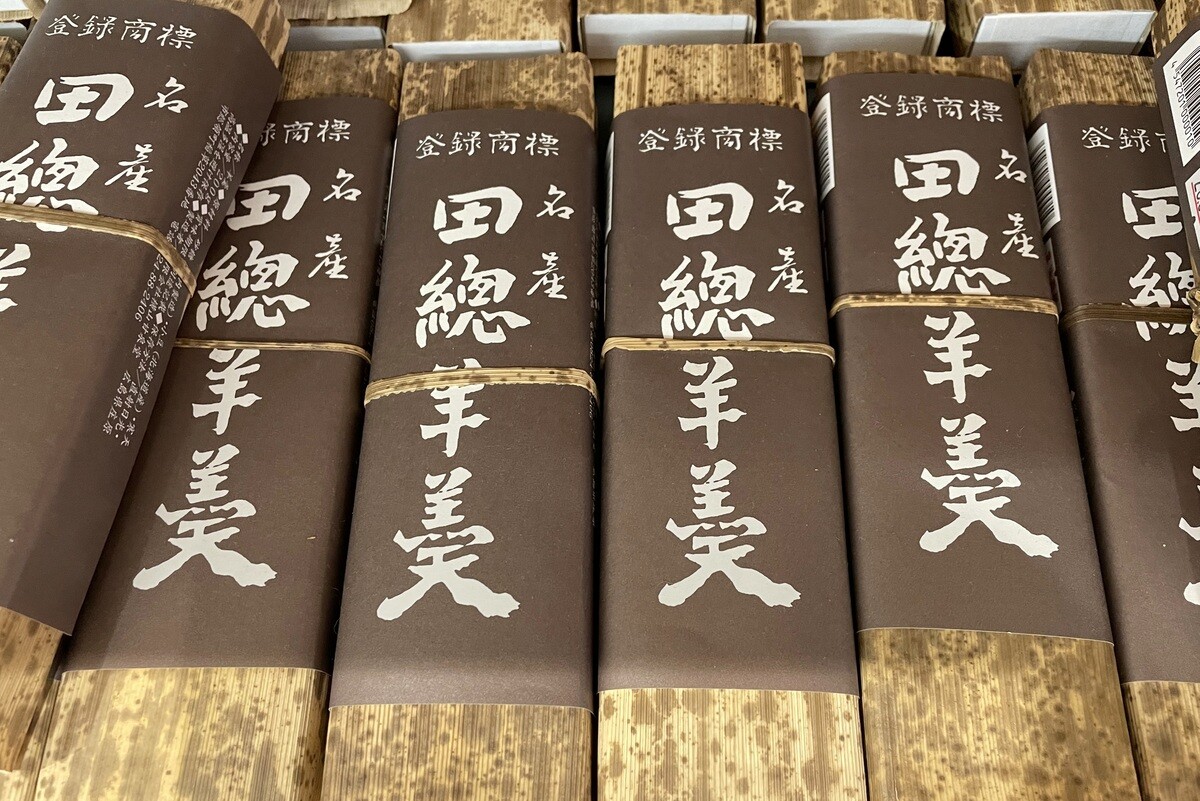 登録商標
名産
田總羊羹
登録商標
名産
田總羊羹
登録商標
名産
田總羊羹
登録商標
名産
田總羊羹
登録商標
名産
田總羊羹
登録商
田總羊